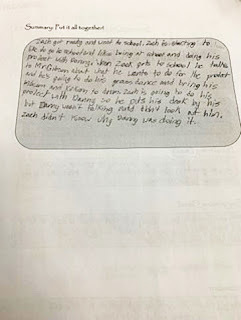 Summary: Put it all together!
Zach got ready and went to school. Zach is starting to
like to go to school and likes being at school and doing his
project with Danny. When Zach gets to school he talks
to Mr. Gibson about what he wants to do for the project
and he's going to do his grass dance and bring in
and to them. Zach is going to do his
project with Danny so he puts his desk by his
but Danny wasn't talking and didn't look at him.
Zach didn't know why Danny was doing it.